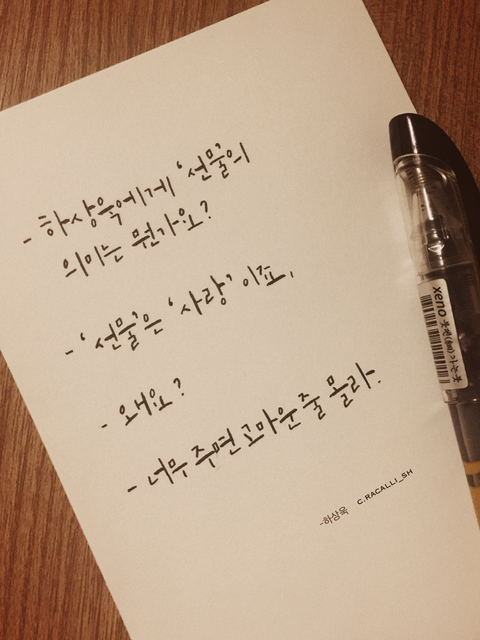 - 하상욱에게 '선물'의
의미는 뭔가요?
- '선물'은 '사랑' 이죠.
- 왜요?
- 너무 주면 고마운 줄 몰라.
-하상욱 C.RACALLI_SH
xeno 붓펜(細)가는붓